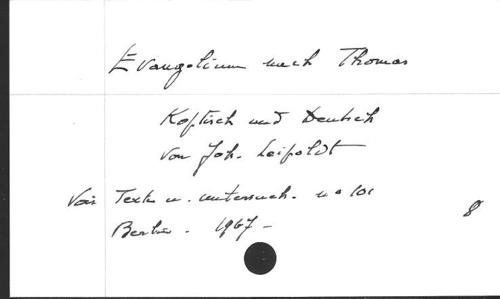 Evangelium nach Thomas
Koptisch und Deutsch
von Joh. Leipoldt
Voir Texte u. untersuch. no 101
Berlin - 1967 -
8